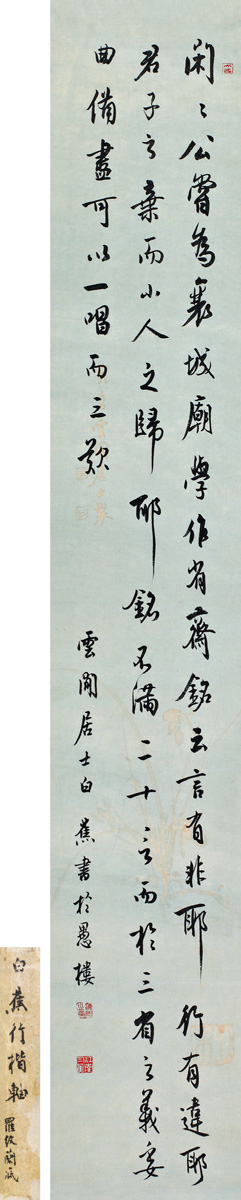 閑〻公嘗為襄城廟學作省齋銘云言有非耶行有違耶
君子之棄而小人之歸耶銘不滿二十言而於三省之義委
曲備盡可以一唱而三歎
雲間居士白蕉書於愚樓
白蕉行楷軸